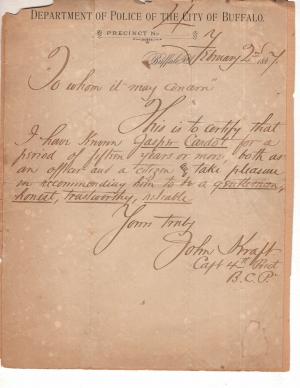 DEPARTMENT OF POLICE OF THE CITY OF BUFFALO.
PRECINCT No 4
Buffalo, N.Y. February 2nd 1887.
"To whom it may concern"
This is to certify that
I have Known Gaspar Cardot, for a
period of fifteen years or more, both as
an officer and a citizen & take pleasure
in recommending him to be a gentleman,
honest, trustworthy, reliable
Yours truly
John Kraft
Capt 4th Prct
B.C.P.